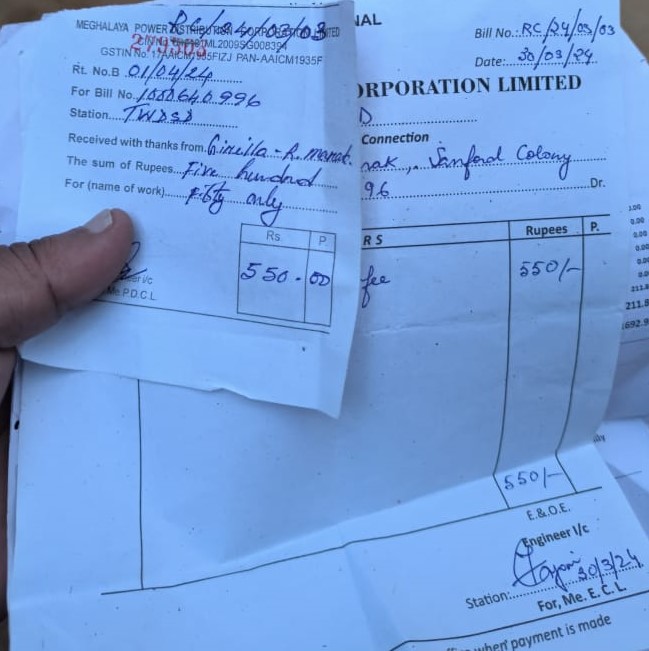 MEGHALAYA POWER DISTRIBUTION CORPORATION LIMITED
RC/24/03/03
GSTIN No.
PAN-AAICM1935F
Rt. No.B 01/04/24
For Bill No. 1000640996
Station TWDSD
Received with thanks from R. marak.
The sum of Rupees Five hundred
For (name of work) Fifty only
Rs. P.
550 . 00
Me.P.D.C.L.
NAL
Bill No.: RC/24/03/03
Date: 30/03/24
ORPORATION LIMITED
D
Connection
nak, Sanford Colony
96 Dr.
R S Rupees P.
fee 550/-
550/-
E.&O.E.
Engineer I/c
30/3/24
Station:
For, Me. E. C. L.
when payment is made
1.00
0.00
0.00
0.00
211.8
692.9